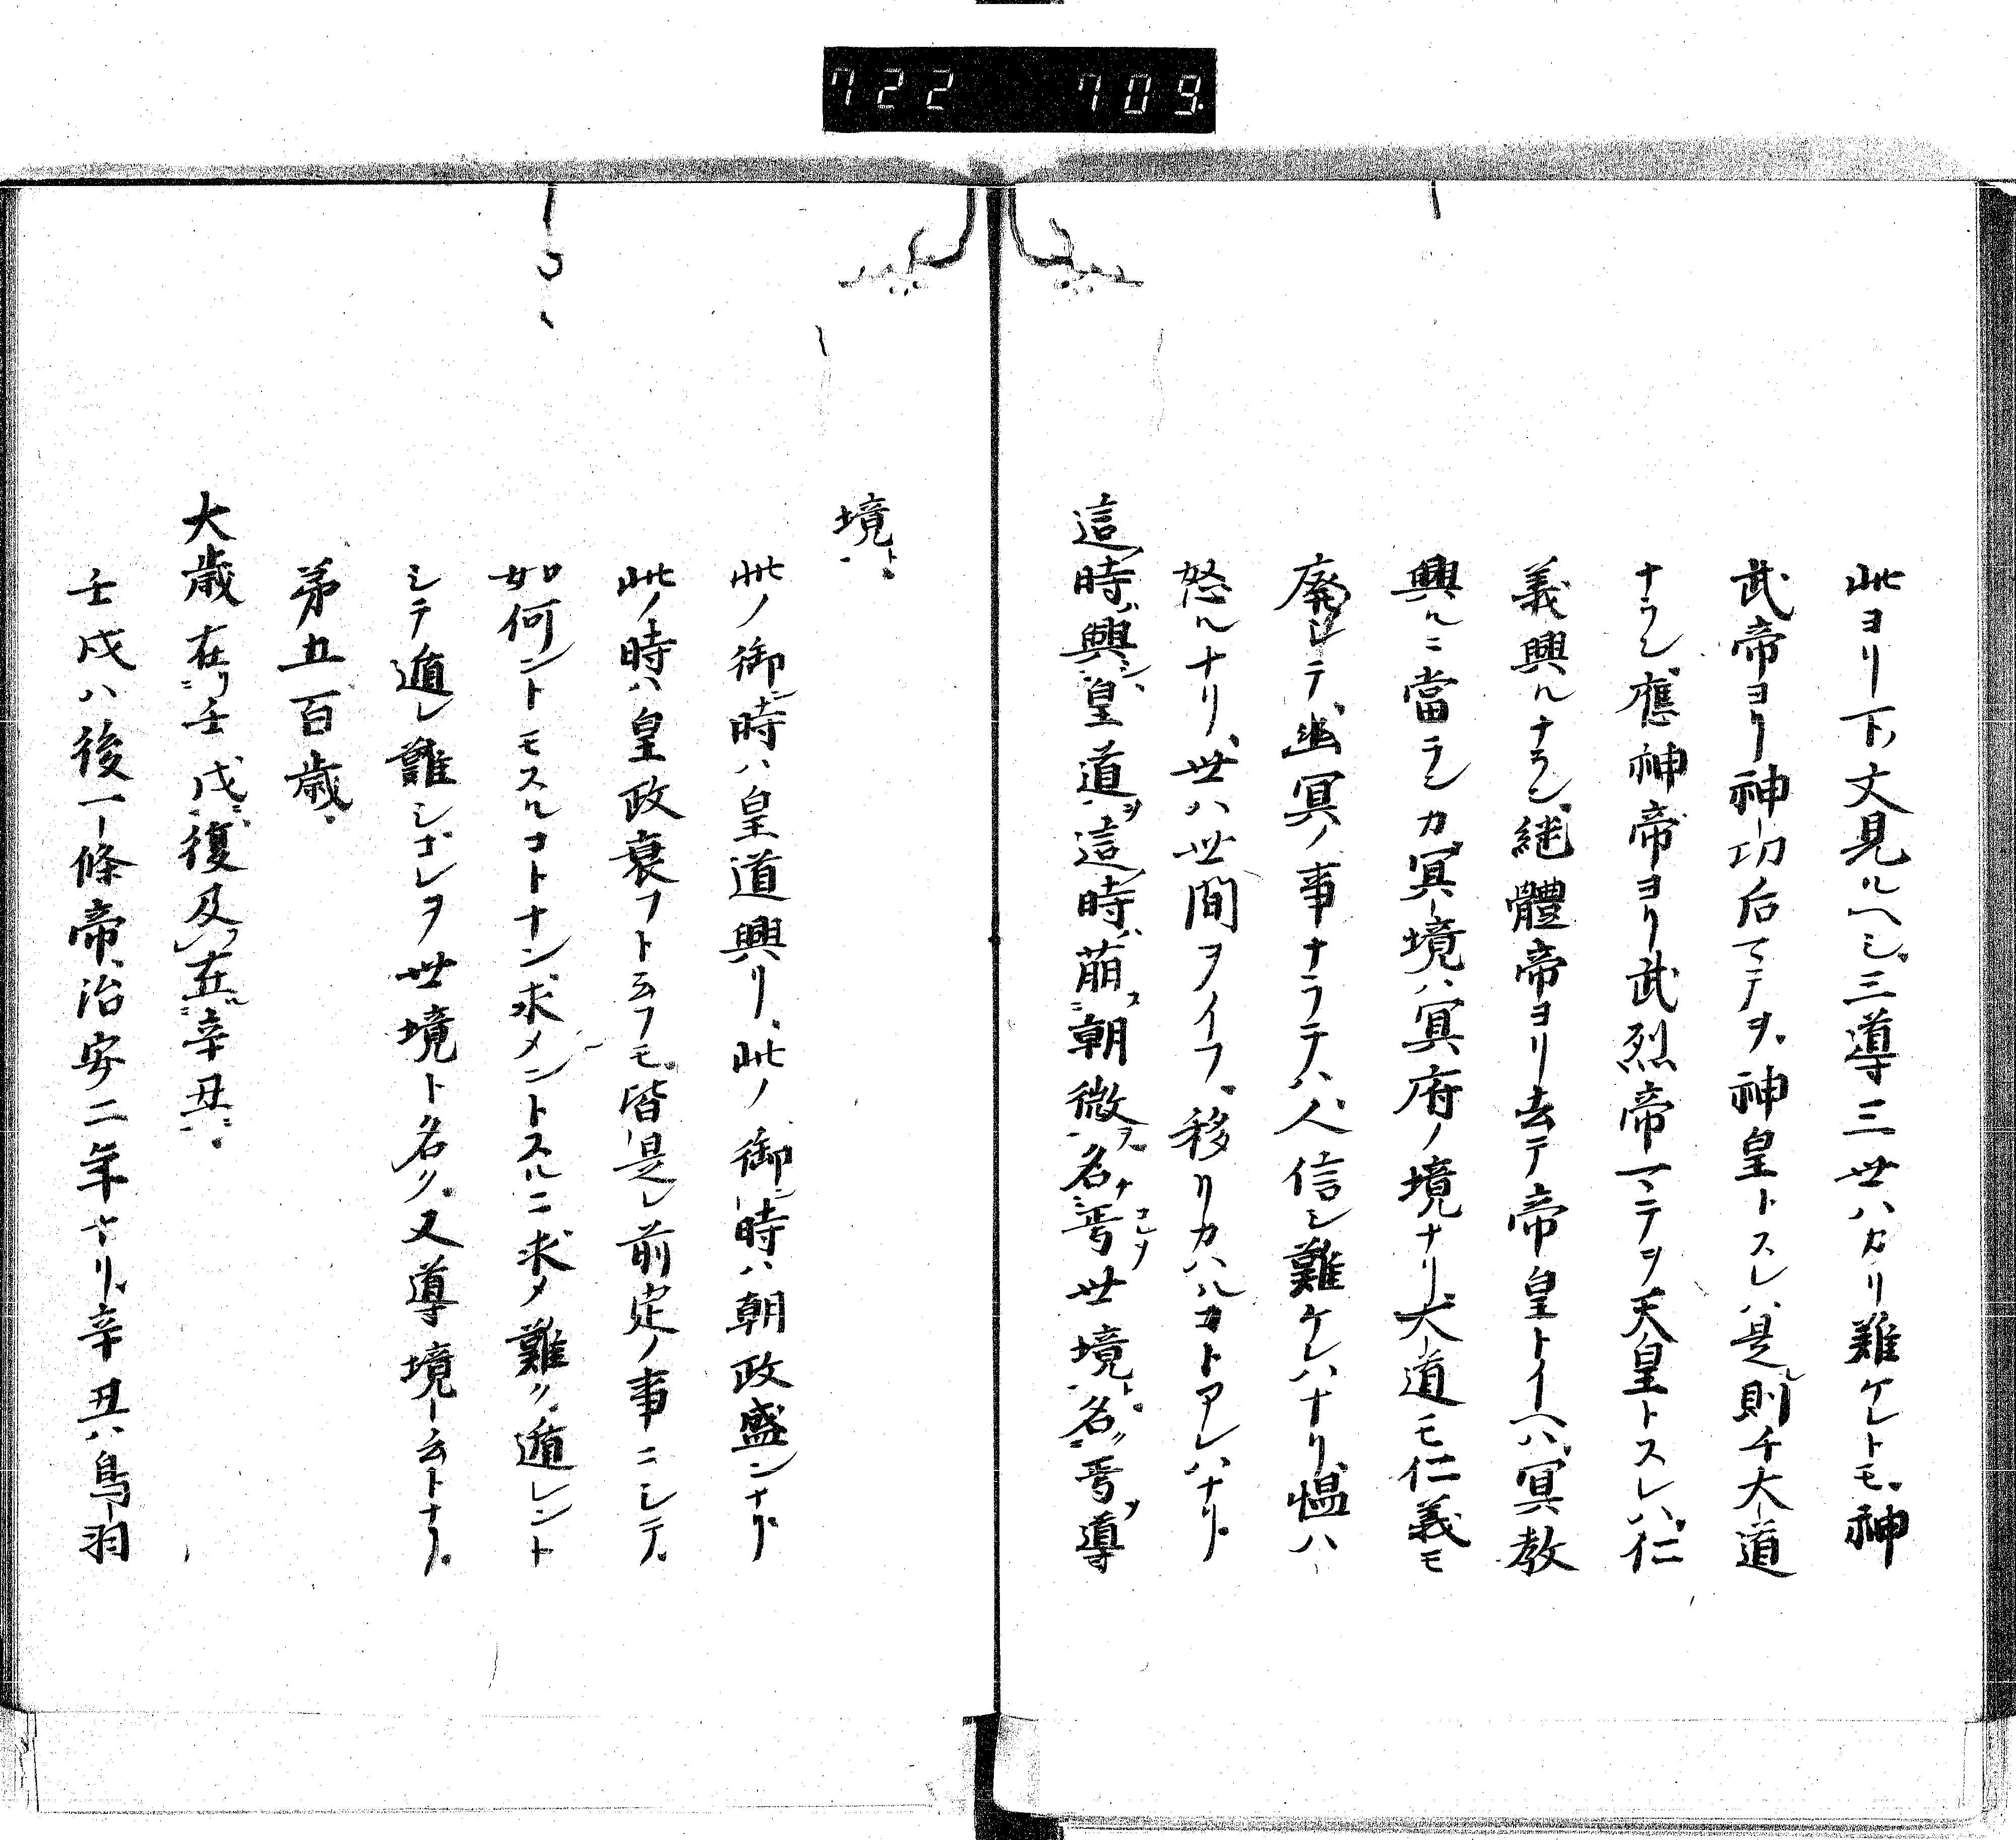 722 709
此ヨリ下ノ文見ルヘシ三導三世ハカリ難ケレトモ神
武帝ヨリ神功后マテヲ神皇トスレハ是レ則チ大道
ナラン應神帝ヨリ武烈帝マテヲ天皇トスレハ仁
義興ルナラン継體帝ヨリ去テ帝皇トイヘハ冥教
興ルニ當ランカ冥境ハ冥府ノ境ナリ大道モ仁義モ
廃レテ幽冥ノ事ナラテハ人信シ難ケレハナリ愠ハ
怒ルナリ世ハ世間ヲイフ移リカハルコトアレハナリ
這時ハ興シ皇道ヲ這時ハ萠ス朝微ヲ名ケ焉コレヲ世境ト名ク焉ヲ導
境ト
此ノ御時ハ皇道興リ此ノ御時ハ朝政盛ンナリ
此ノ時ハ皇政衰フト云フモ皆是レ前定ノ事ニシテ
如何ントモスルコトナン求メントスルニ求メ難ク遁レント
シテ遁レ難シコレヲ世境ト名ク又導境ト云トナリ
第五百歳
大歳在リ壬戌ニ復及フ在ルニ辛丑ニ
壬戌ハ後一條帝治安二年ナリ辛丑ハ鳥羽